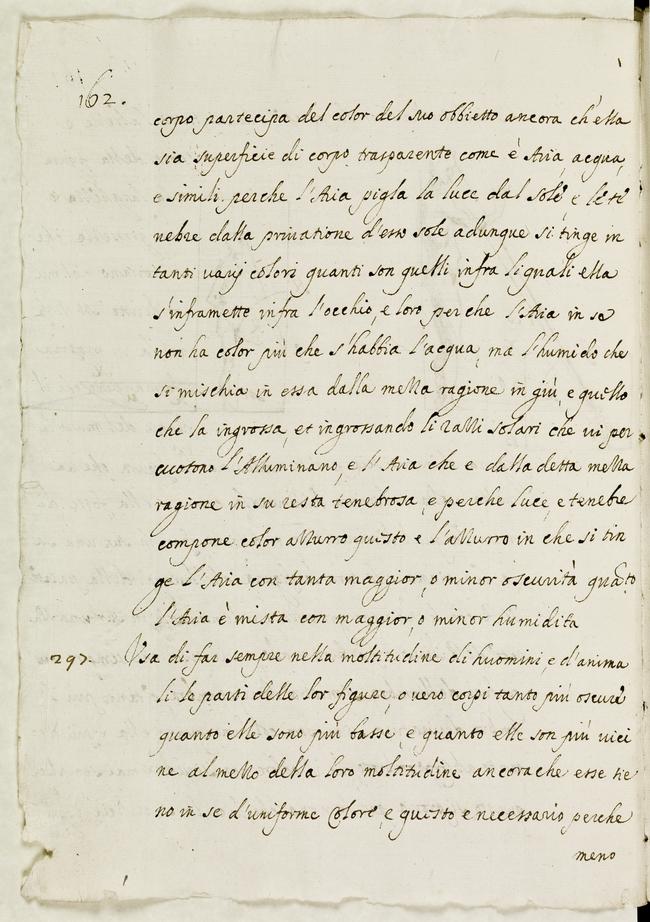 162.
corpo partecipa del color del suo obbietto ancora ch'ella
sia superficie di corpo trasparente come è Aria, acqua,
e simili. perche l'Aria pigla la luce dal sole, e le te
nebre dalla priuatione d'esso sole adunque si tinge in
tanti varij colori quanti son quelli infra li quali ella
s'inframette infra l'occhio, e loro perche l'Aria in se
non ha color più che s'habbia l'acqua, ma l'humido che
si mischia in essa dalla mezza ragione in giù, e quello
che la ingrossa, et ingrossando li razzi solari che ui per
cuotono l'Alluminano, e l'Aria che e dalla detta mezza
ragione in su resta tenebrosa, e perche luce, e tenebre
compone color azzurro questo e l'azzurro in che si tin
ge l'Aria con tanta maggior, o minor oscurità quãto
l'Aria è mista con maggior, o minor humidita
297. Vsa di far sempre nella moltitudine di huomini, e d'anima
li le parti delle lor figure, o uero corpi tanto più oscure
quanto elle sono più basse, e quanto elle son più uici
ne al mezzo della loro moltitudine ancora che esse sie
no in se d'uniforme colore, e questo e necessario perche
meno